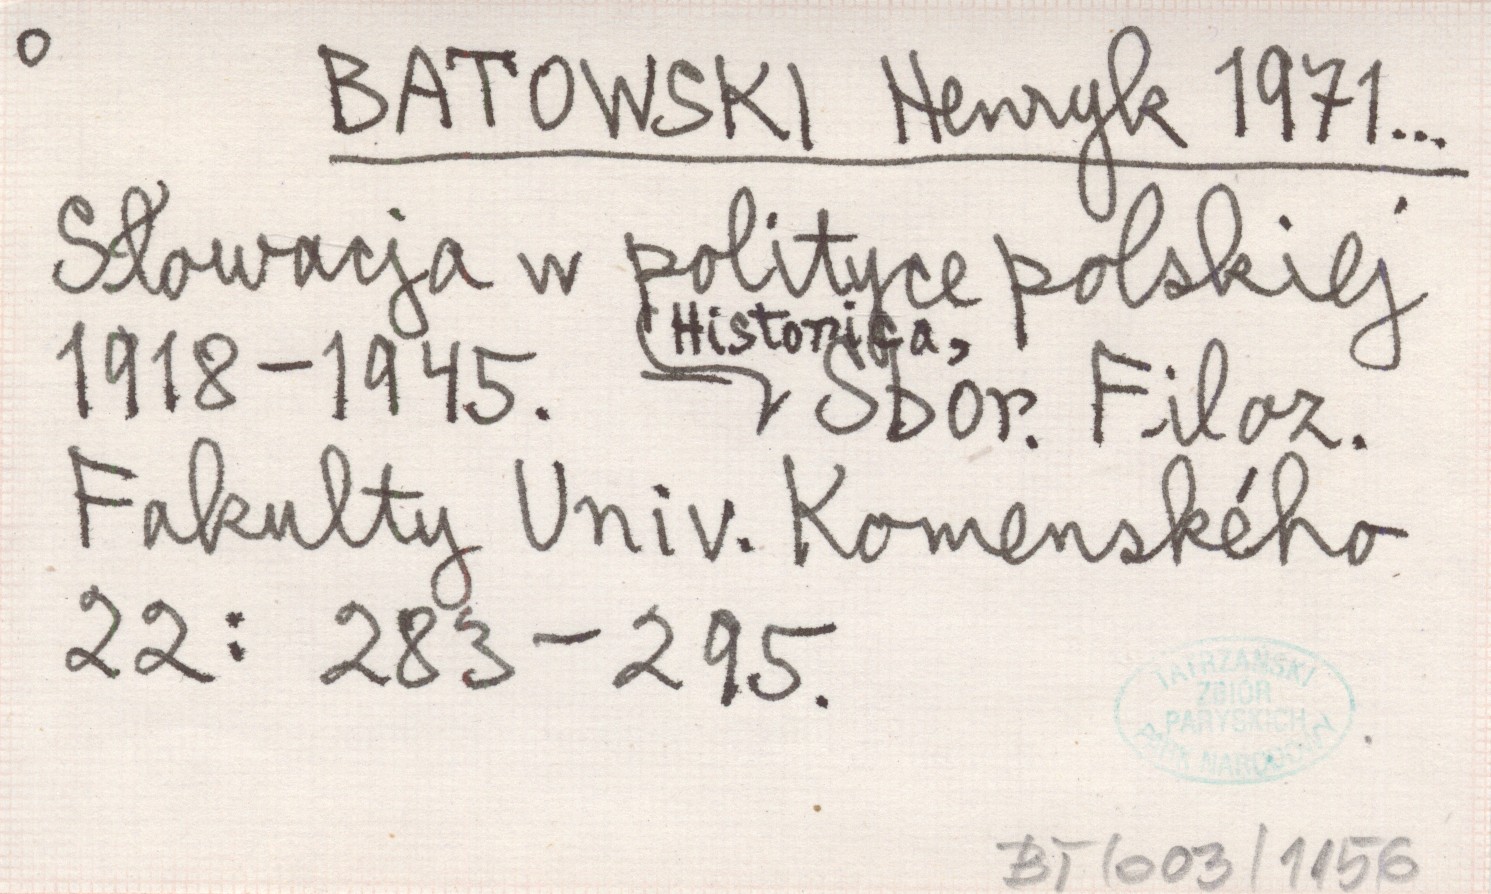 o
BATOWSKI Henryk 1971...
Słowacja w polityce polskiej
1918-1945. Historica, Sbor. Filoz.
Fakulty Univ. Komenského
22: 283-295.
TATRZAŃSKI
ZBIÓR
PARYSKICH
PARK NARODOWY
BT/003/1156